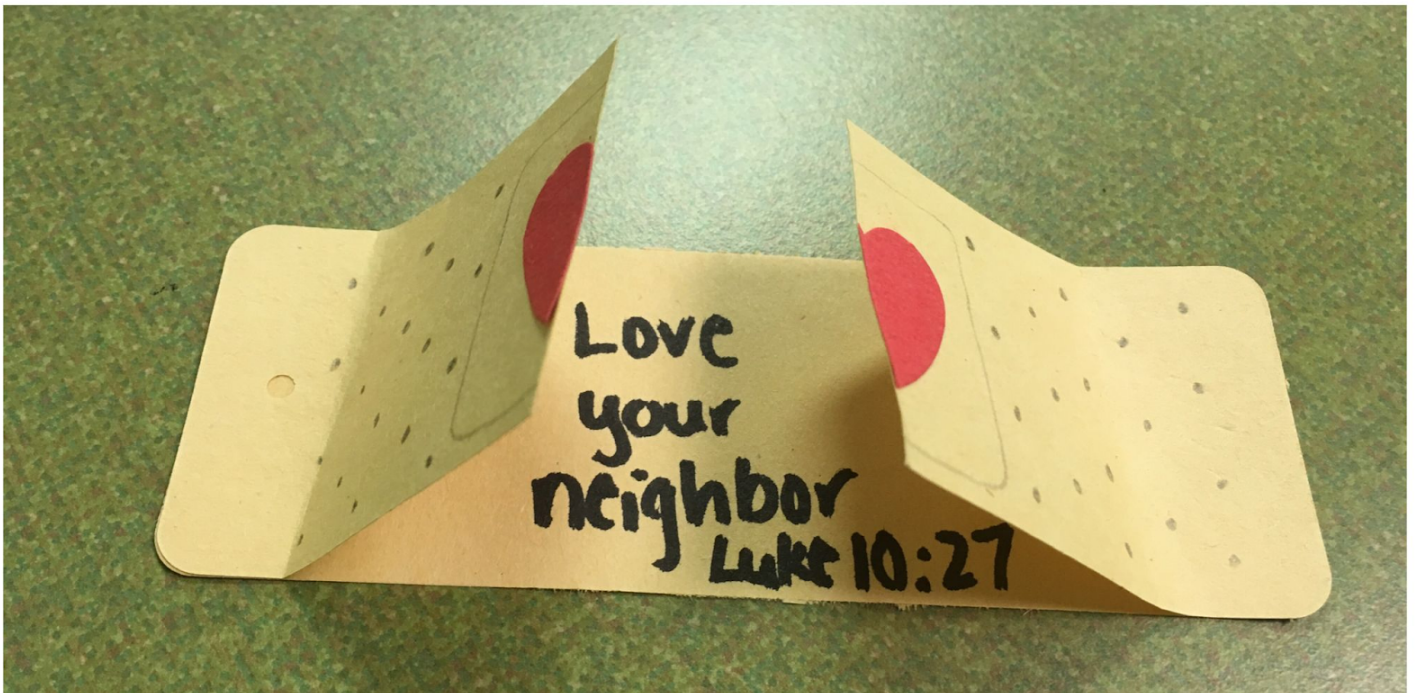 Love
your
neighbor
Luke 10:27